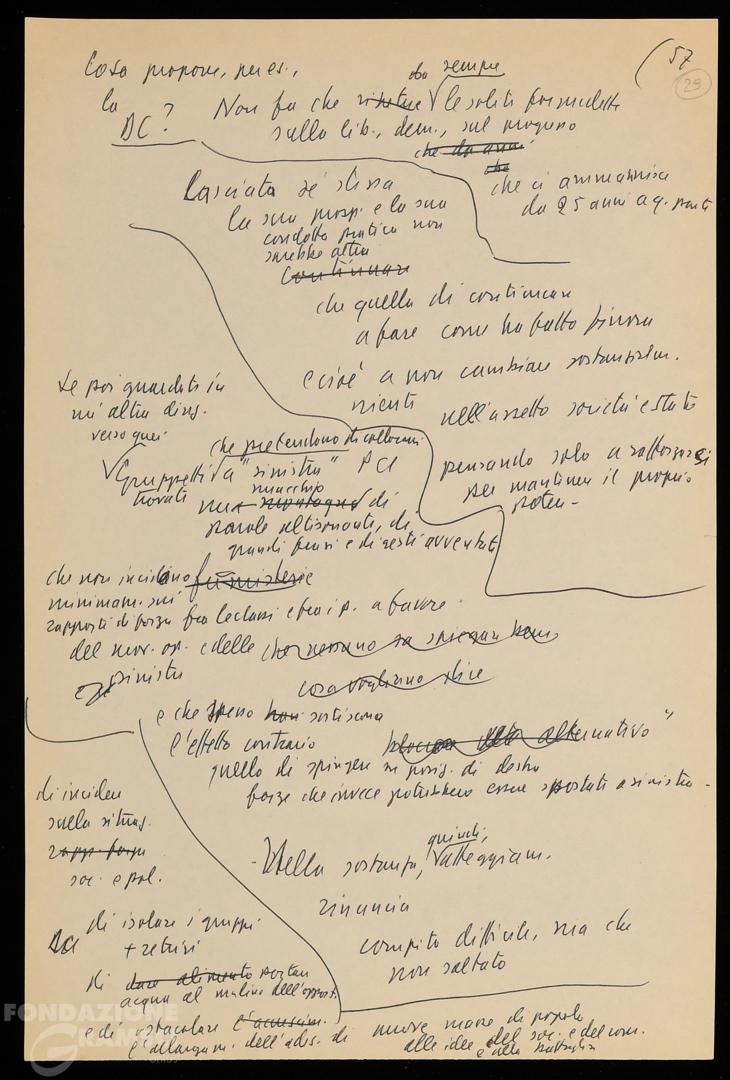 (57
29
Cosa propone, per es.,
la DC?
Non fa che da sempre le solite
sulla lib., dem., sul progresso
che da anni
che
che ci ammannisce
da 25 anni a q. parte
Lasciata a sé stessa
la sua prosp. e la sua
condotta pratica non
sarebbe altra
continuare
che quella di continuare
a fare come ha fatto finora
e cioè a non cambiare sostanzialm.
niente
nell'assetto società e stato
pensando solo a rafforzarsi
per mantenere il proprio
potere -
Se poi guardate in
un'altra direz.
verso quei
Gruppetti a "sinistra" PCI
che pretendono di collocarsi
trovate
mucchio
una montagna di
parole altisonanti, di
grandi frasi e di gesti avventati
che non incidono
minimam. sui
rapporti di forza fra le classi e fra i p. a favore
del mov. op. e delle
sinistre
che nessuno sa spiegare bene
cosa vogliano dire
e che spesso non sortiscono
l'effetto contrario
alternativo"
quello di spingere su posiz. di destra
forze che invece potrebbero essere spostate a sinistra -
- Nella sostanza, quindi, atteggiam.
rinuncia
compito difficile, ma che
non saltato
di incidere
sulla situaz.
rapp. forza
soc. e pol.
di isolare i gruppi
+ retrivi
DC
di dare alimento portare
acqua al mulino dell'
e di ostacolare l'accrescim.
l'allargam. dell'ades. di nuove masse di popolo
alle idee del soc. e del com.
e alla battaglia
FONDAZIONE
GRAMSCI